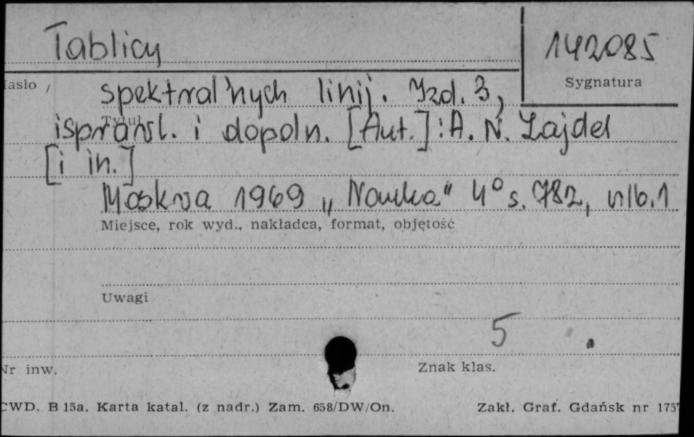 Tablicy
142085
Hasło
Sygnatura
spektral'nych linij. Izd. 3,
Tytuł
ispravl. i dopoln. [Aut.]: A. N. Zajdel
[i in.]
Moskva 1969 „Nauka" 4° s. 782, nlb. 1
Miejsce, rok wyd., nakładca, format, objętość
Uwagi
5
Nr inw.
Znak klas.
CWD. B 15a. Karta katal. (z nadr.) Zam. 658/DW/On.
Zakł. Graf. Gdańsk nr 1757